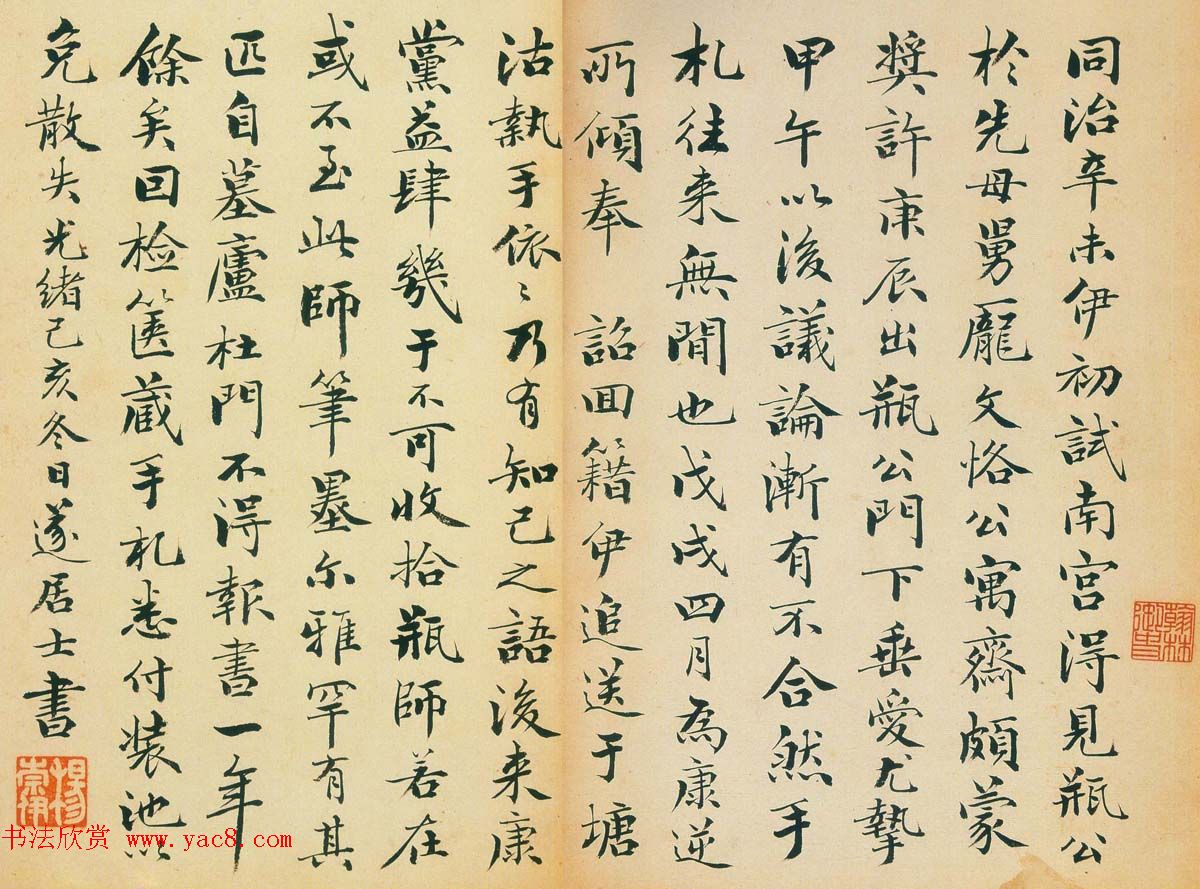 同治辛未伊初試南宮得見瓶公
於先母舅龐文恪公寓齋頗蒙
獎許庚辰出瓶公門下垂愛尤摯
甲午以後議論漸有不合然手
札往来無間也戊戌四月為康逆
所傾奉 詔回籍伊追送于塘
沽執手依〻乃有知己之語後来康
黨益肆幾于不可收拾瓶師若在
或不至此師筆墨尔雅罕有其
匹自墓廬杜門不得報書一年
餘矣回檢箧蔵手札悉付装池以
免散失光緒己亥冬日遂居士書
翰林
楊崇伊
书法欣赏 www.yac8.com